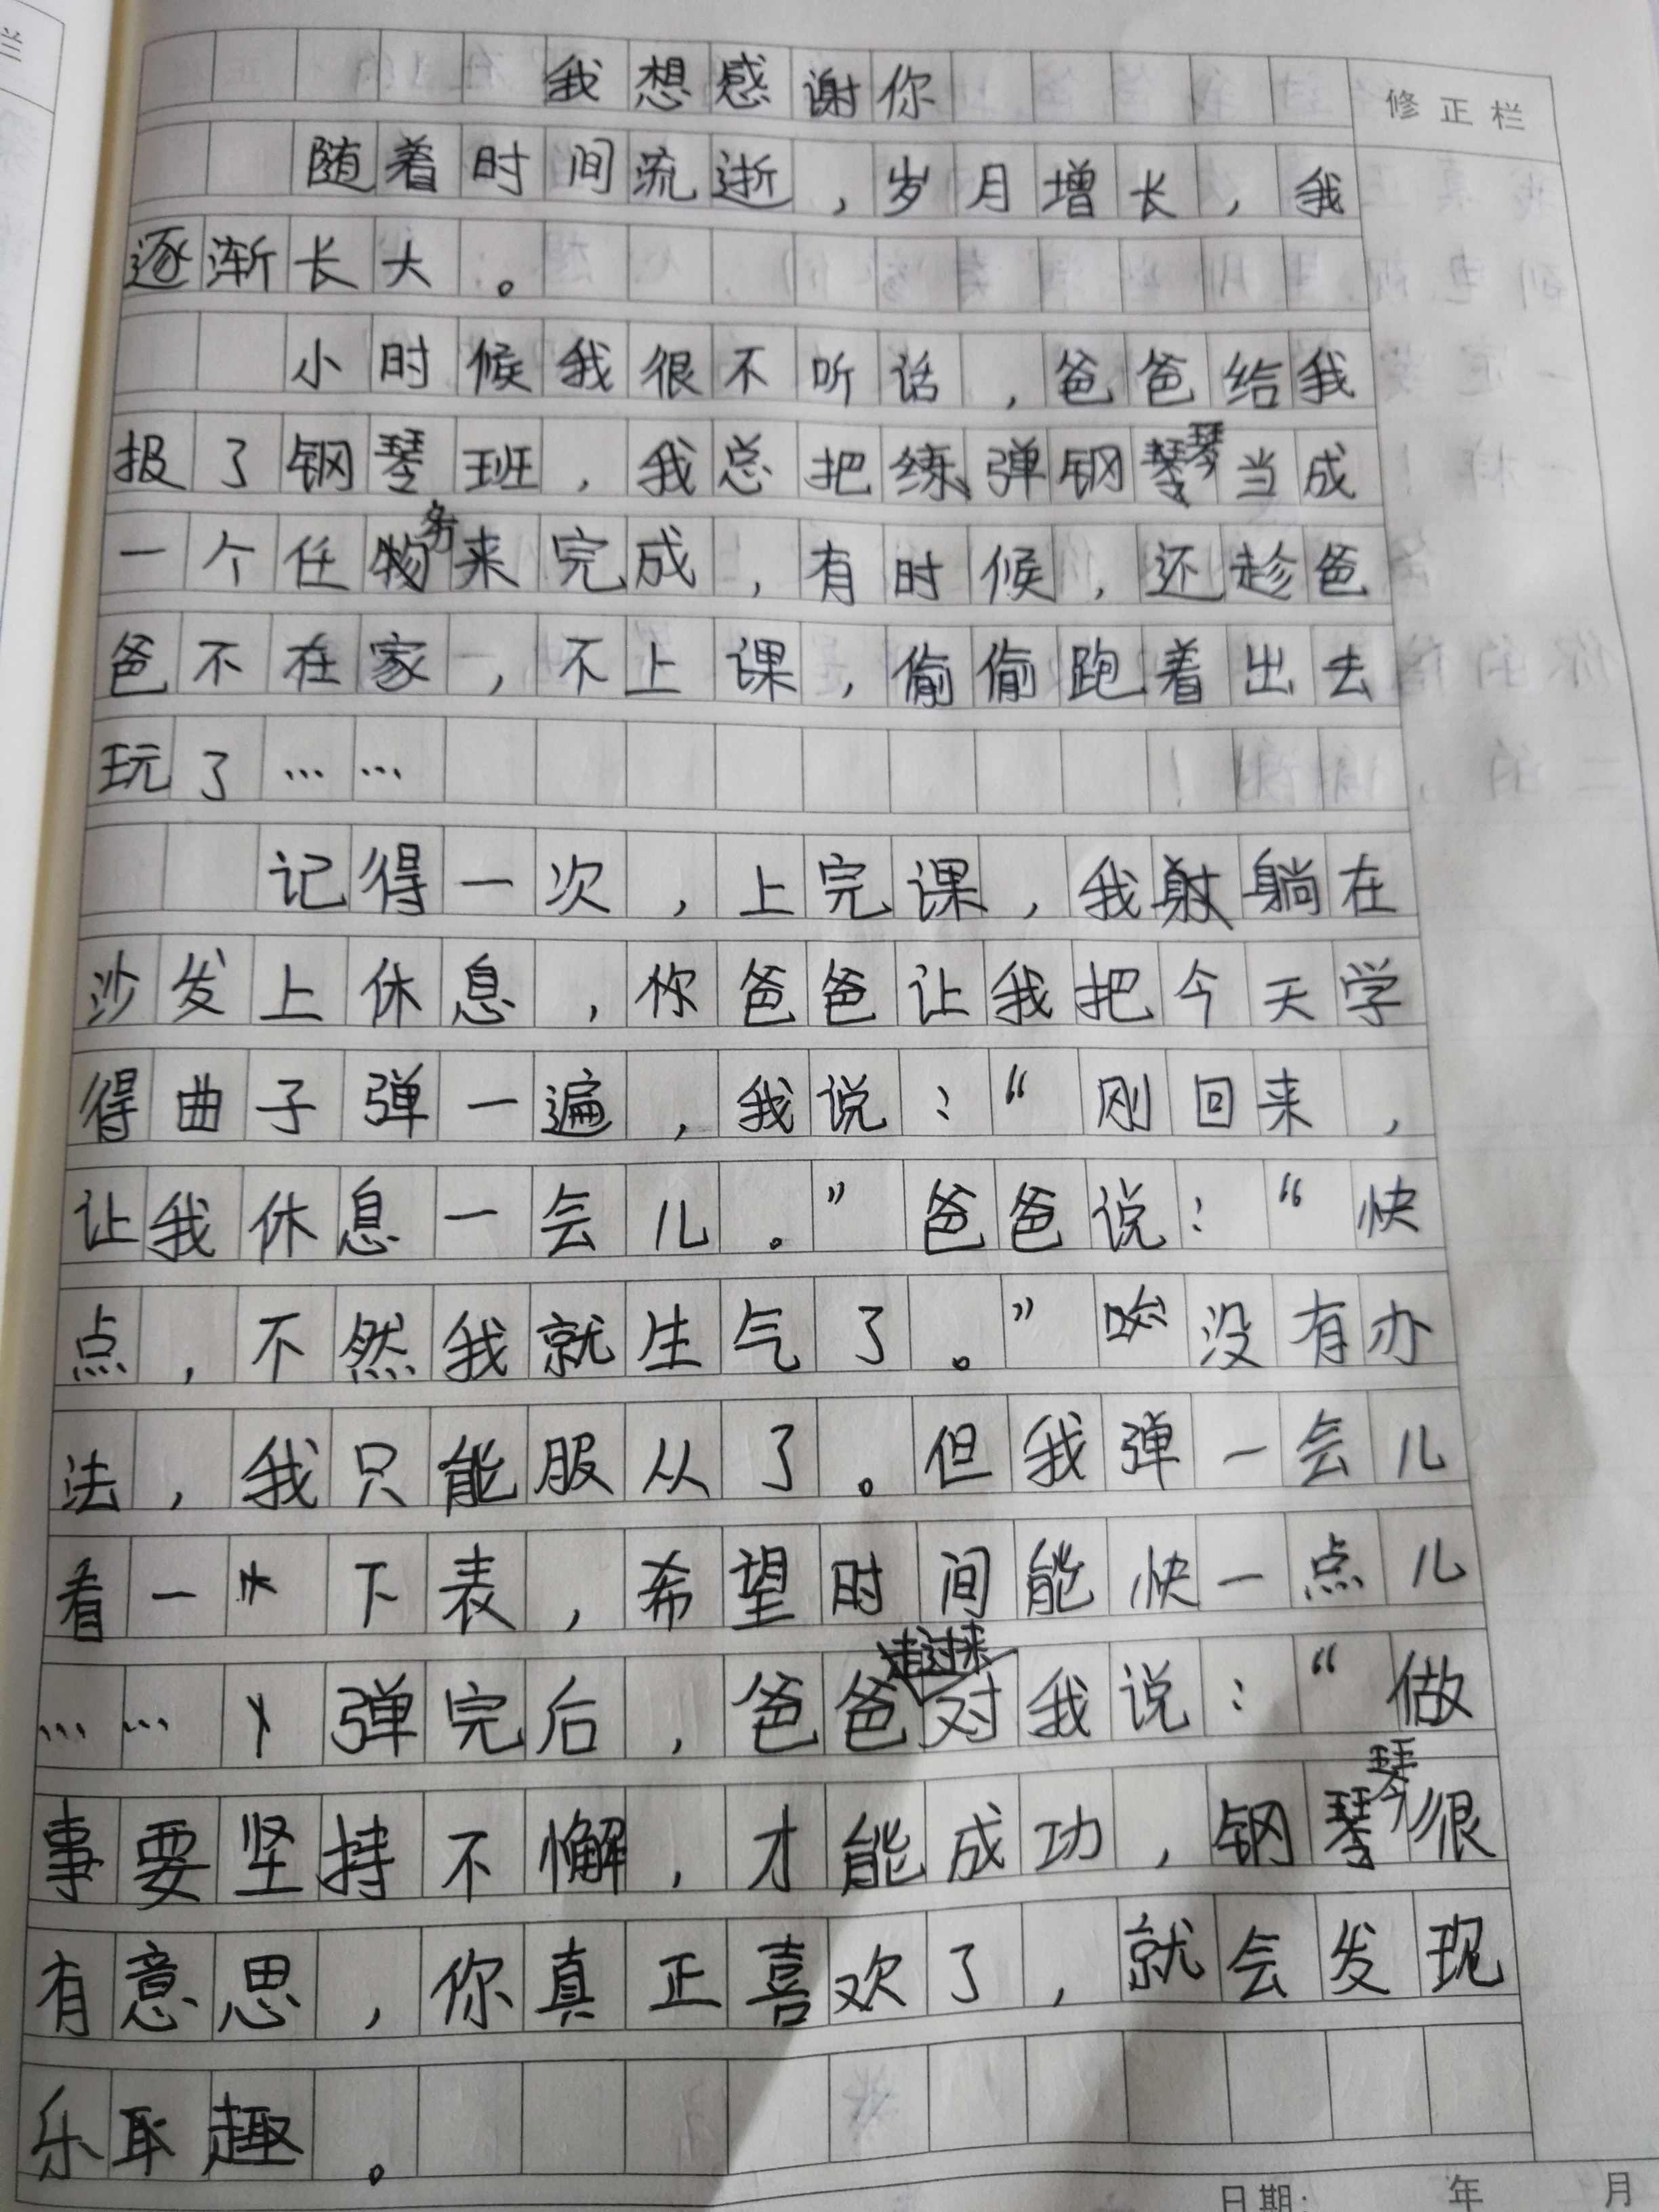 我想感谢你
修正栏
随着时间流逝，岁月增长，我
逐渐长大。
小时候我很不听话，爸爸给我
报了钢琴班，我总把练弹钢琴当成
一个任务来完成，有时候，还趁爸
爸不在家，不上课，偷偷跑着出去
玩了……
记得一次，上完课，我躺在
沙发上休息，你爸爸让我把今天学
得曲子弹一遍，我说：“刚回来，
让我休息一会儿。”爸爸说：“快
点，不然我就生气了。”没有办
法，我只能服从了。但我弹一会儿
看一下表，希望时间能快一点儿
……弹完后，爸爸走过来对我说：“做
事要坚持不懈，才能成功，钢琴很
有意思，你真正喜欢了，就会发现
乐趣。
日期： 年 月